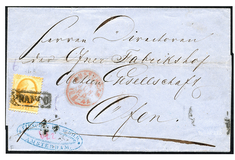 Herren Directoren
der Ofner Fabrikshof
Actien Gesellschaft
Ofen.
FRANCO